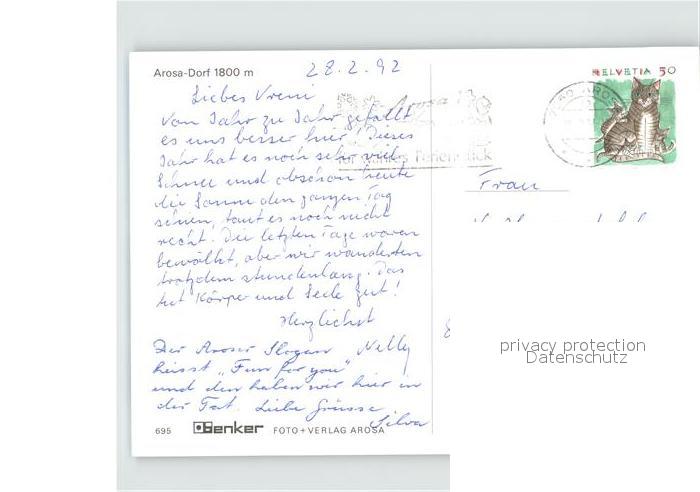 Arosa-Dorf 1800 m
28.2.92
HELVETIA 50
Liebes Vreni
Vom Jahr zu Jahr gefällt
es uns besser hier! Dieses
Jahr hat es noch sehr viel
Schnee und obschon heute
die Sonne den ganzen Tag
schien, taut es noch nicht
recht. Die letzten Tage waren
bewölkt, aber wir wanderten
trotzdem stundenlang. Das
tut Körper und Seele gut!
Herzlichst
Nelly
Der Aroser Slogan
heisst "Fun for you"
und den haben wir hier in
der Tat. Liebe Grüsse
Silva
Arosa
Ferienglück
Frau
privacy protection
Datenschutz
695 Benker FOTO+VERLAG AROSA